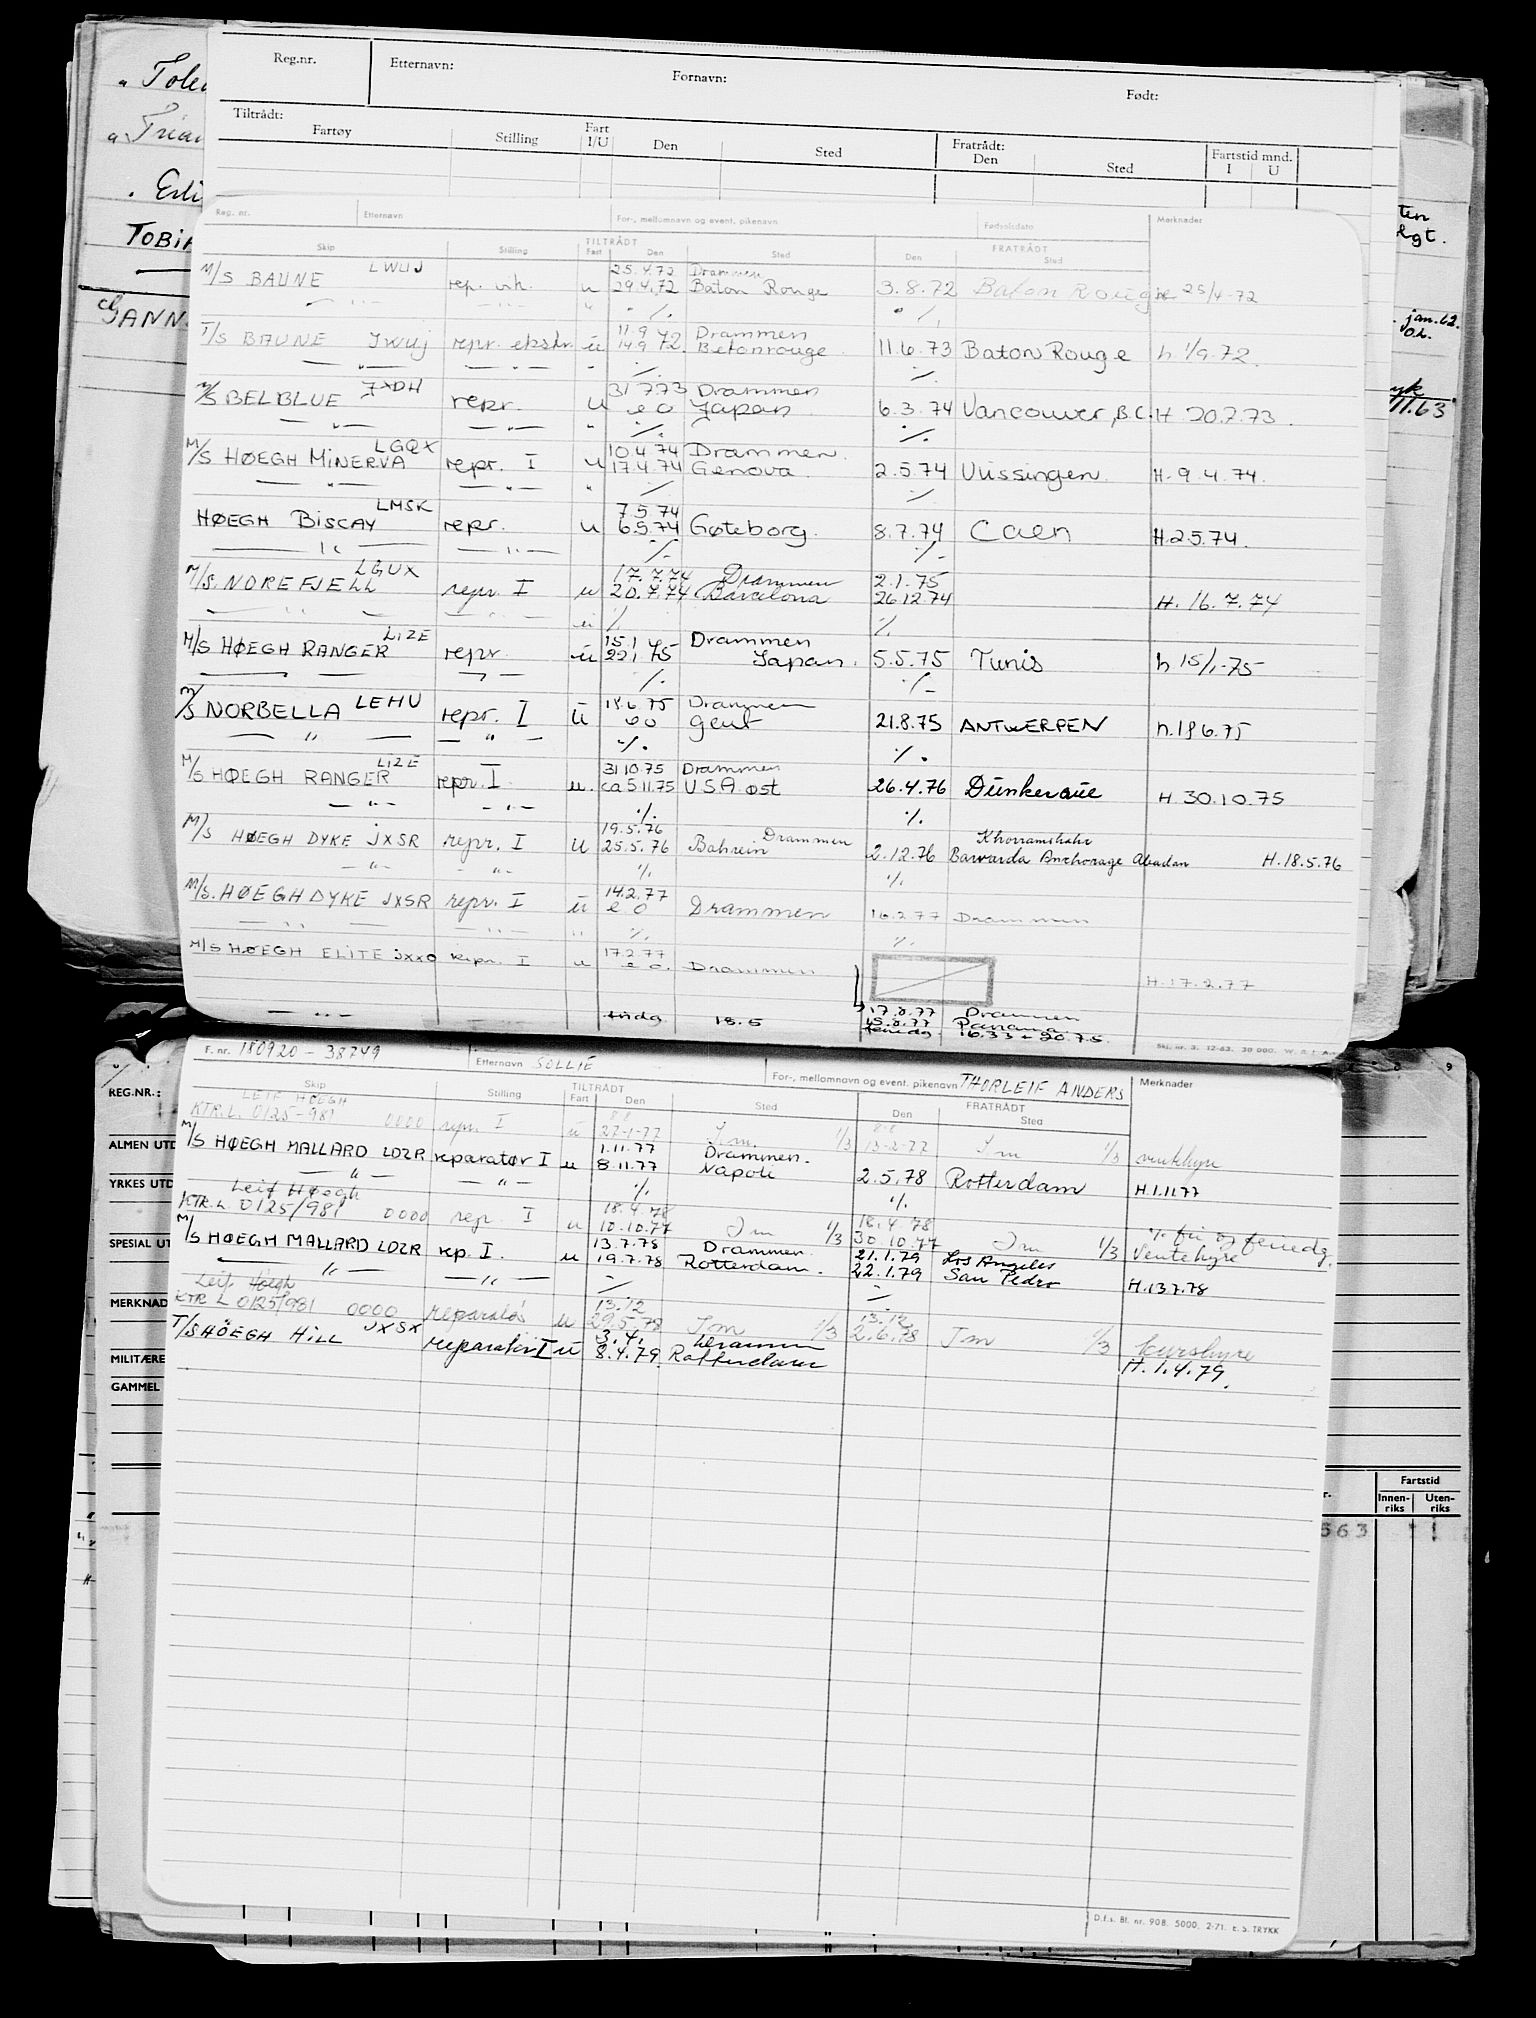 Reg.nr. Etternavn: Fornavn: Født:
Tiltrådt: Fratrådt:
Fartøy Stilling Fart I/U Den Sted Den Sted Fartstid mnd. I U
TOBIA
jan.62.
11.63
Reg. nr. Etternavn For-, mellomnavn og event. pikenavn Fødselsdato Merknader
TILTRÅDT FRATRÅDT
Skip Stilling Fart Den Sted Den Sted
LWUJ 25.4.72 Drammen
M/S BAUNE rep. vik. u 29.4.72 Baton Rouge 3.8.72 Baton Rouge 25/4-72
— " — — " — " ·/. ·/.
11.9 Drammen
T/S BAUNE JWUJ repr. ekstr. ü 14.9 72. Betonrouge 11.6.73 Baton Rouge h 1/9.72.
— " — — " — ·/. ·/.
JXDH 31 7 73 Drammen
M/S BELBLUE repr. u e o Japan 6.3.74 Vancouver, B.C. H 20.7.73.
— " — — " — " ·/. ·/.
LGQX 10.4.74 Drammen.
M/S HØEGH MINERVA repr. I u 17.4.74 Genova 2.5.74 Vlissingen H. 9.4.74.
— " — — " — " ·/. ·/.
LMSK 7.5.74
HØEGH BISCAY repr. u 6.5.74 Gøteborg. 8.7.74 Caen H.2.5.74.
— " — — " — ·/. ·/.
LGUX 17.7.74 Drammen 2.1.75
M/S. NOREFJELL repr. I u 20.7.74 Barcelona 26.12.74 H. 16.7.74
— " — — " — u ·/. ·/.
LIZE 15.1 Drammen
M/S HØEGH RANGER repr. ü 22.1 75 Japan. 5.5.75 Tunis h 15/1-75
— " — ·/. ·/.
LEHU 18.6.75 Drammen
M/S NORBELLA repr. I ü eo gent 21.8.75 ANTWERPEN h.18 6.75
— " — — " — ·/. ·/.
LIZE 31 10.75 Drammen
M/S HØEGH RANGER repr. I u. ca 5 11.75 USA øst 26.4.76 Dünkerque H 30.10.75
— " — — " — ·/. ·/.
19.5.76 Drammen Khorramshahr
M/S HØEGH DYKE JXSR repr. I u 25.5.76 Bahrein 2.12.76 Bawarda Anchorage Abadan H.18.5.76
— " — — " — ·/. ·/.
14.2.77
M/S. HØEGH DYKE JXSR repr. I ü e o Drammen 16.2.77 Drammen
— " — — " — " ·/. ·/.
17.2.77
M/S HØEGH ELITE JXXO repr. I u e o. Drammen H.17.2.77
17.8.77 Drammen
15.8.77 Panama
— " — 18.5 feriedg. 16.33 - 20.7.5.
Skj. nr. 3. 12-63. 30 000.
F. nr. 180920 - 38749 Etternavn SOLLIE For-, mellomnavn og event. pikenavn THORLEIF ANDERS Merknader
REG.NR.:
Skip Stilling TILTRÅDT Fart Den Sted FRATRÅDT Den Sted
LEIF HØEGH 8.8 8.8
KTR.L. 0125-981 0000 repr. I ü 27-1-77 Jm 1/3 13-2-77 Jm 1/3 ventehyre
1.11.77 Drammen.
M/S HØEGH MALLARD LDZR reparatør I u 8.11.77 Napoli 2.5.78 Rotterdam H.1.11.77
— " — — " — ·/. ·/.
Leif Høegh 18.4.78 18.4.78
KTR. L. 0125/981 0000 rep. I u 10.10.77 Jm 1/3 30.10.77 Jm 1/3 Ventehyre
13.7.78 Drammen. 21.1.79 Los Angeles
M/S HØEGH MALLARD LDZR rep. I. u 19.7.78 Rotterdam. 22.1.79 San Pedro H.13.7.78
— " — — " — ·/. ·/.
Leif Høegh 13.12 13.12
KTR L 0125/981 0000 reparatør u 29.5.78 Jm 1/3 2.6.78 Jm 1/3 kurshyre
JXSX 3.4. Drammen
T/S HÖEGH HILL reparatör I ü 8.4.79. Rotterdam H. 1.4.79.
ALMEN UTD
YRKES UTD
SPECIAL UT
MERKNAD
MILITÆRE
GAMMEL
Fartstid
Innen-riks Uten-riks
563
D.f.s. Bl. nr. 908. 5000. 2-71. E.S. TRYKK